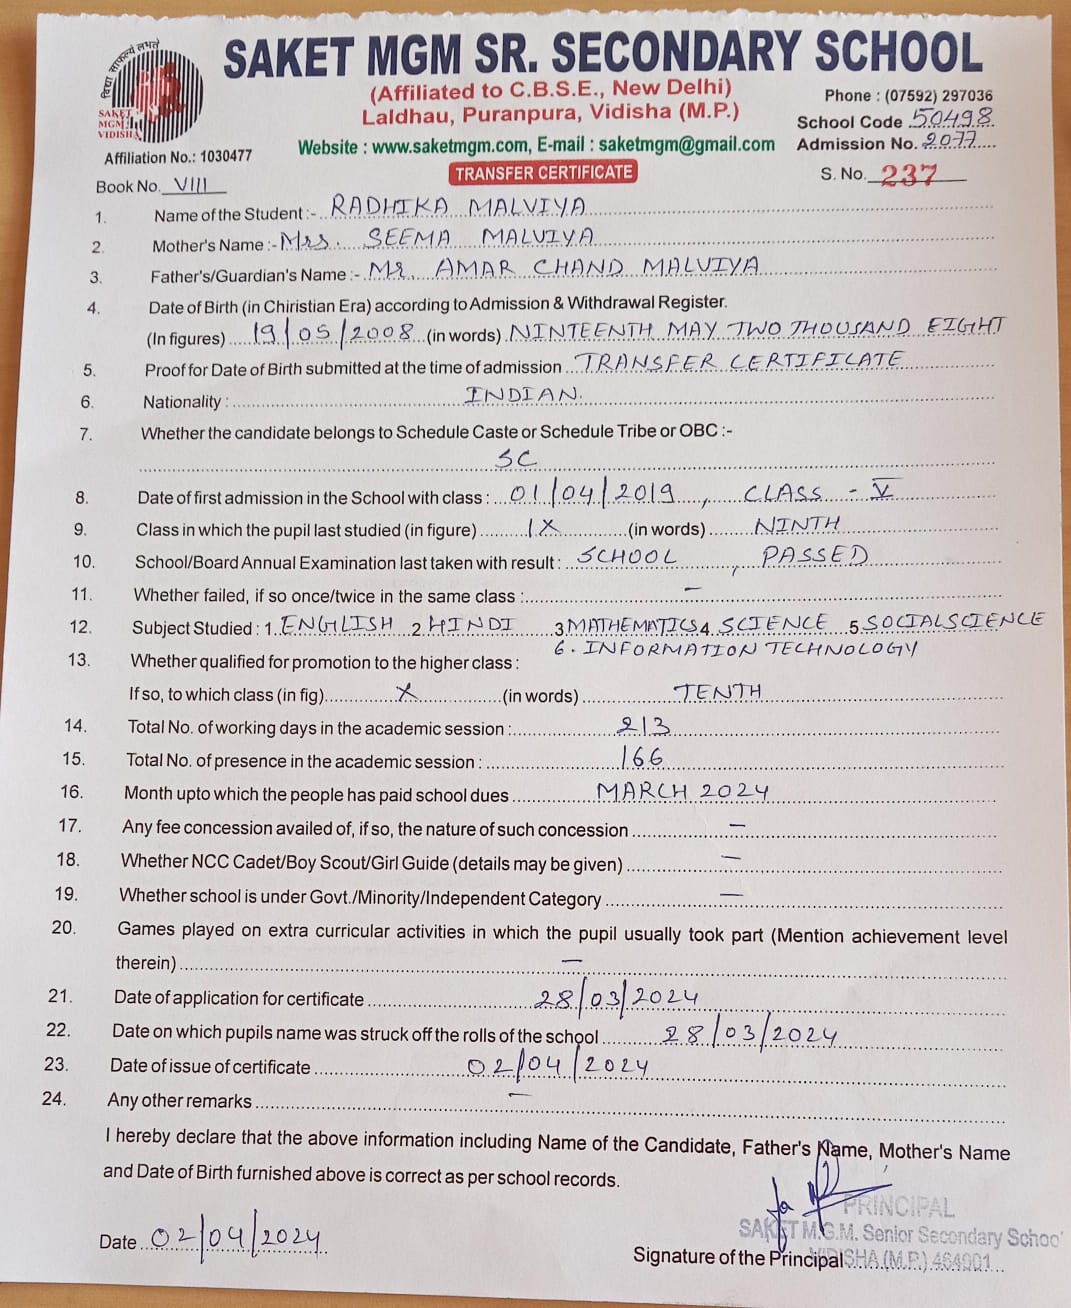 विद्या साफल्यं लभते
SAKET
MGM
VIDISHA
SAKET MGM SR. SECONDARY SCHOOL
(Affiliated to C.B.S.E., New Delhi)
Laldhau, Puranpura, Vidisha (M.P.)
Phone : (07592) 297036
School Code 50498
Affiliation No.: 1030477
Website : www.saketmgm.com, E-mail : saketmgm@gmail.com
Admission No. 2077
Book No. VIII
TRANSFER CERTIFICATE
S. No. 237
1. Name of the Student :- RADHIKA MALVIYA
2. Mother's Name :- Mrs. SEEMA MALVIYA
3. Father's/Guardian's Name :- Mr. AMAR CHAND MALVIYA
4. Date of Birth (in Chiristian Era) according to Admission & Withdrawal Register.
(In figures) 19/05/2008 (in words) NINTEENTH MAY TWO THOUSAND EIGHT
5. Proof for Date of Birth submitted at the time of admission TRANSFER CERTIFICATE
6. Nationality : INDIAN.
7. Whether the candidate belongs to Schedule Caste or Schedule Tribe or OBC :-
SC
8. Date of first admission in the School with class : 01/04/2019, CLASS - V
9. Class in which the pupil last studied (in figure) IX (in words) NINTH
10. School/Board Annual Examination last taken with result : SCHOOL, PASSED
11. Whether failed, if so once/twice in the same class : –
12. Subject Studied : 1. ENGLISH 2 HINDI 3 MATHEMATICS 4 SCIENCE 5 SOCIAL SCIENCE
6. INFORMATION TECHNOLOGY
13. Whether qualified for promotion to the higher class :
If so, to which class (in fig) X (in words) TENTH
14. Total No. of working days in the academic session : 213
15. Total No. of presence in the academic session : 166
16. Month upto which the people has paid school dues MARCH 2024
17. Any fee concession availed of, if so, the nature of such concession –
18. Whether NCC Cadet/Boy Scout/Girl Guide (details may be given) –
19. Whether school is under Govt./Minority/Independent Category –
20. Games played on extra curricular activities in which the pupil usually took part (Mention achievement level
therein) –
21. Date of application for certificate 28/03/2024
22. Date on which pupils name was struck off the rolls of the school 28/03/2024
23. Date of issue of certificate 02/04/2024
24. Any other remarks –
I hereby declare that the above information including Name of the Candidate, Father's Name, Mother's Name
and Date of Birth furnished above is correct as per school records.
PRINCIPAL
SAKET M.G.M. Senior Secondary School
Date 02/04/2024
Signature of the Principal VIDISHA (M.P.) 464001